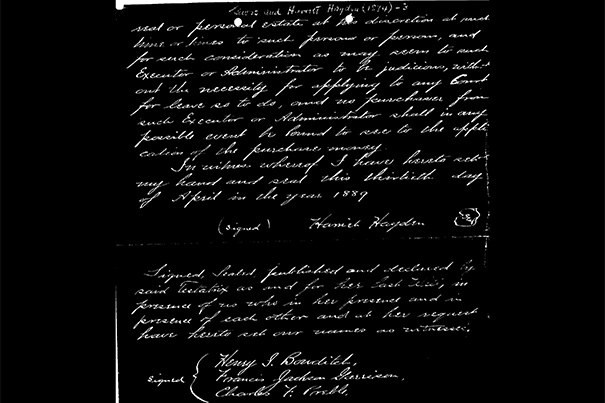 Lewis and Harriet Hayden (1874) - 3
real or personal estate at his discretion at such
time or times to such person or persons, and
for such consideration as may seem to such
Executor or Administrator to be judicious, with-
out the necessity for applying to any Court
for leave so to do, and no purchaser from
such Executor or Administrator shall in any
possible event be bound to see to the appli
cation of the purchase money.
In witness whereof I have hereto set
my hand and seal this thirtieth day
of April in the year 1889
(signed) Harriet Hayden
Signed, Sealed published and declared by
said Testatrix as and for her Last Will, in
presence of us who in her presence and in
presence of each other and at her request
have hereto set our names as witnesses.
signed
Henry I. Bowditch,
Francis Jackson Garrison,
Charles F. Preble,